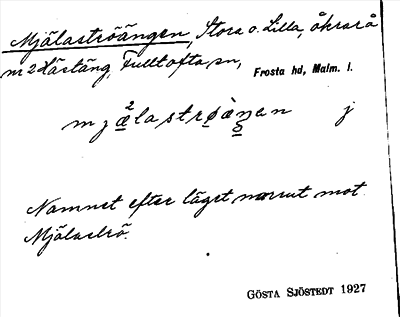 Mjälaströängen, Stora o. Lilla, åkrar å
nr 2 Hästäng, Fulltofta sn,
Frosta hd, Malm. l.
mjælastrøàŋan j
Namnet efter läget norrut mot
Mjälaströ.
GÖSTA SJÖSTEDT 1927